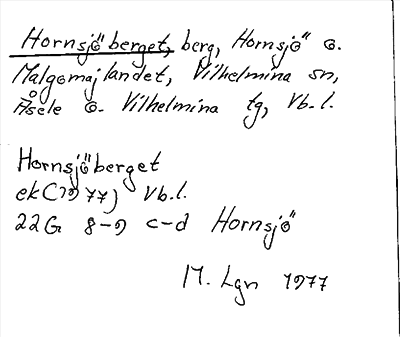 Hornsjöberget, berg, Hornsjö o.
Malgomajlandet, Vilhelmina sn,
Åsele o. Vilhelmina tg, Vb.l.
Hornsjöberget
ek(1977) Vb.l.
22G 8-9 c-d Hornsjö
M. Lgn 1977